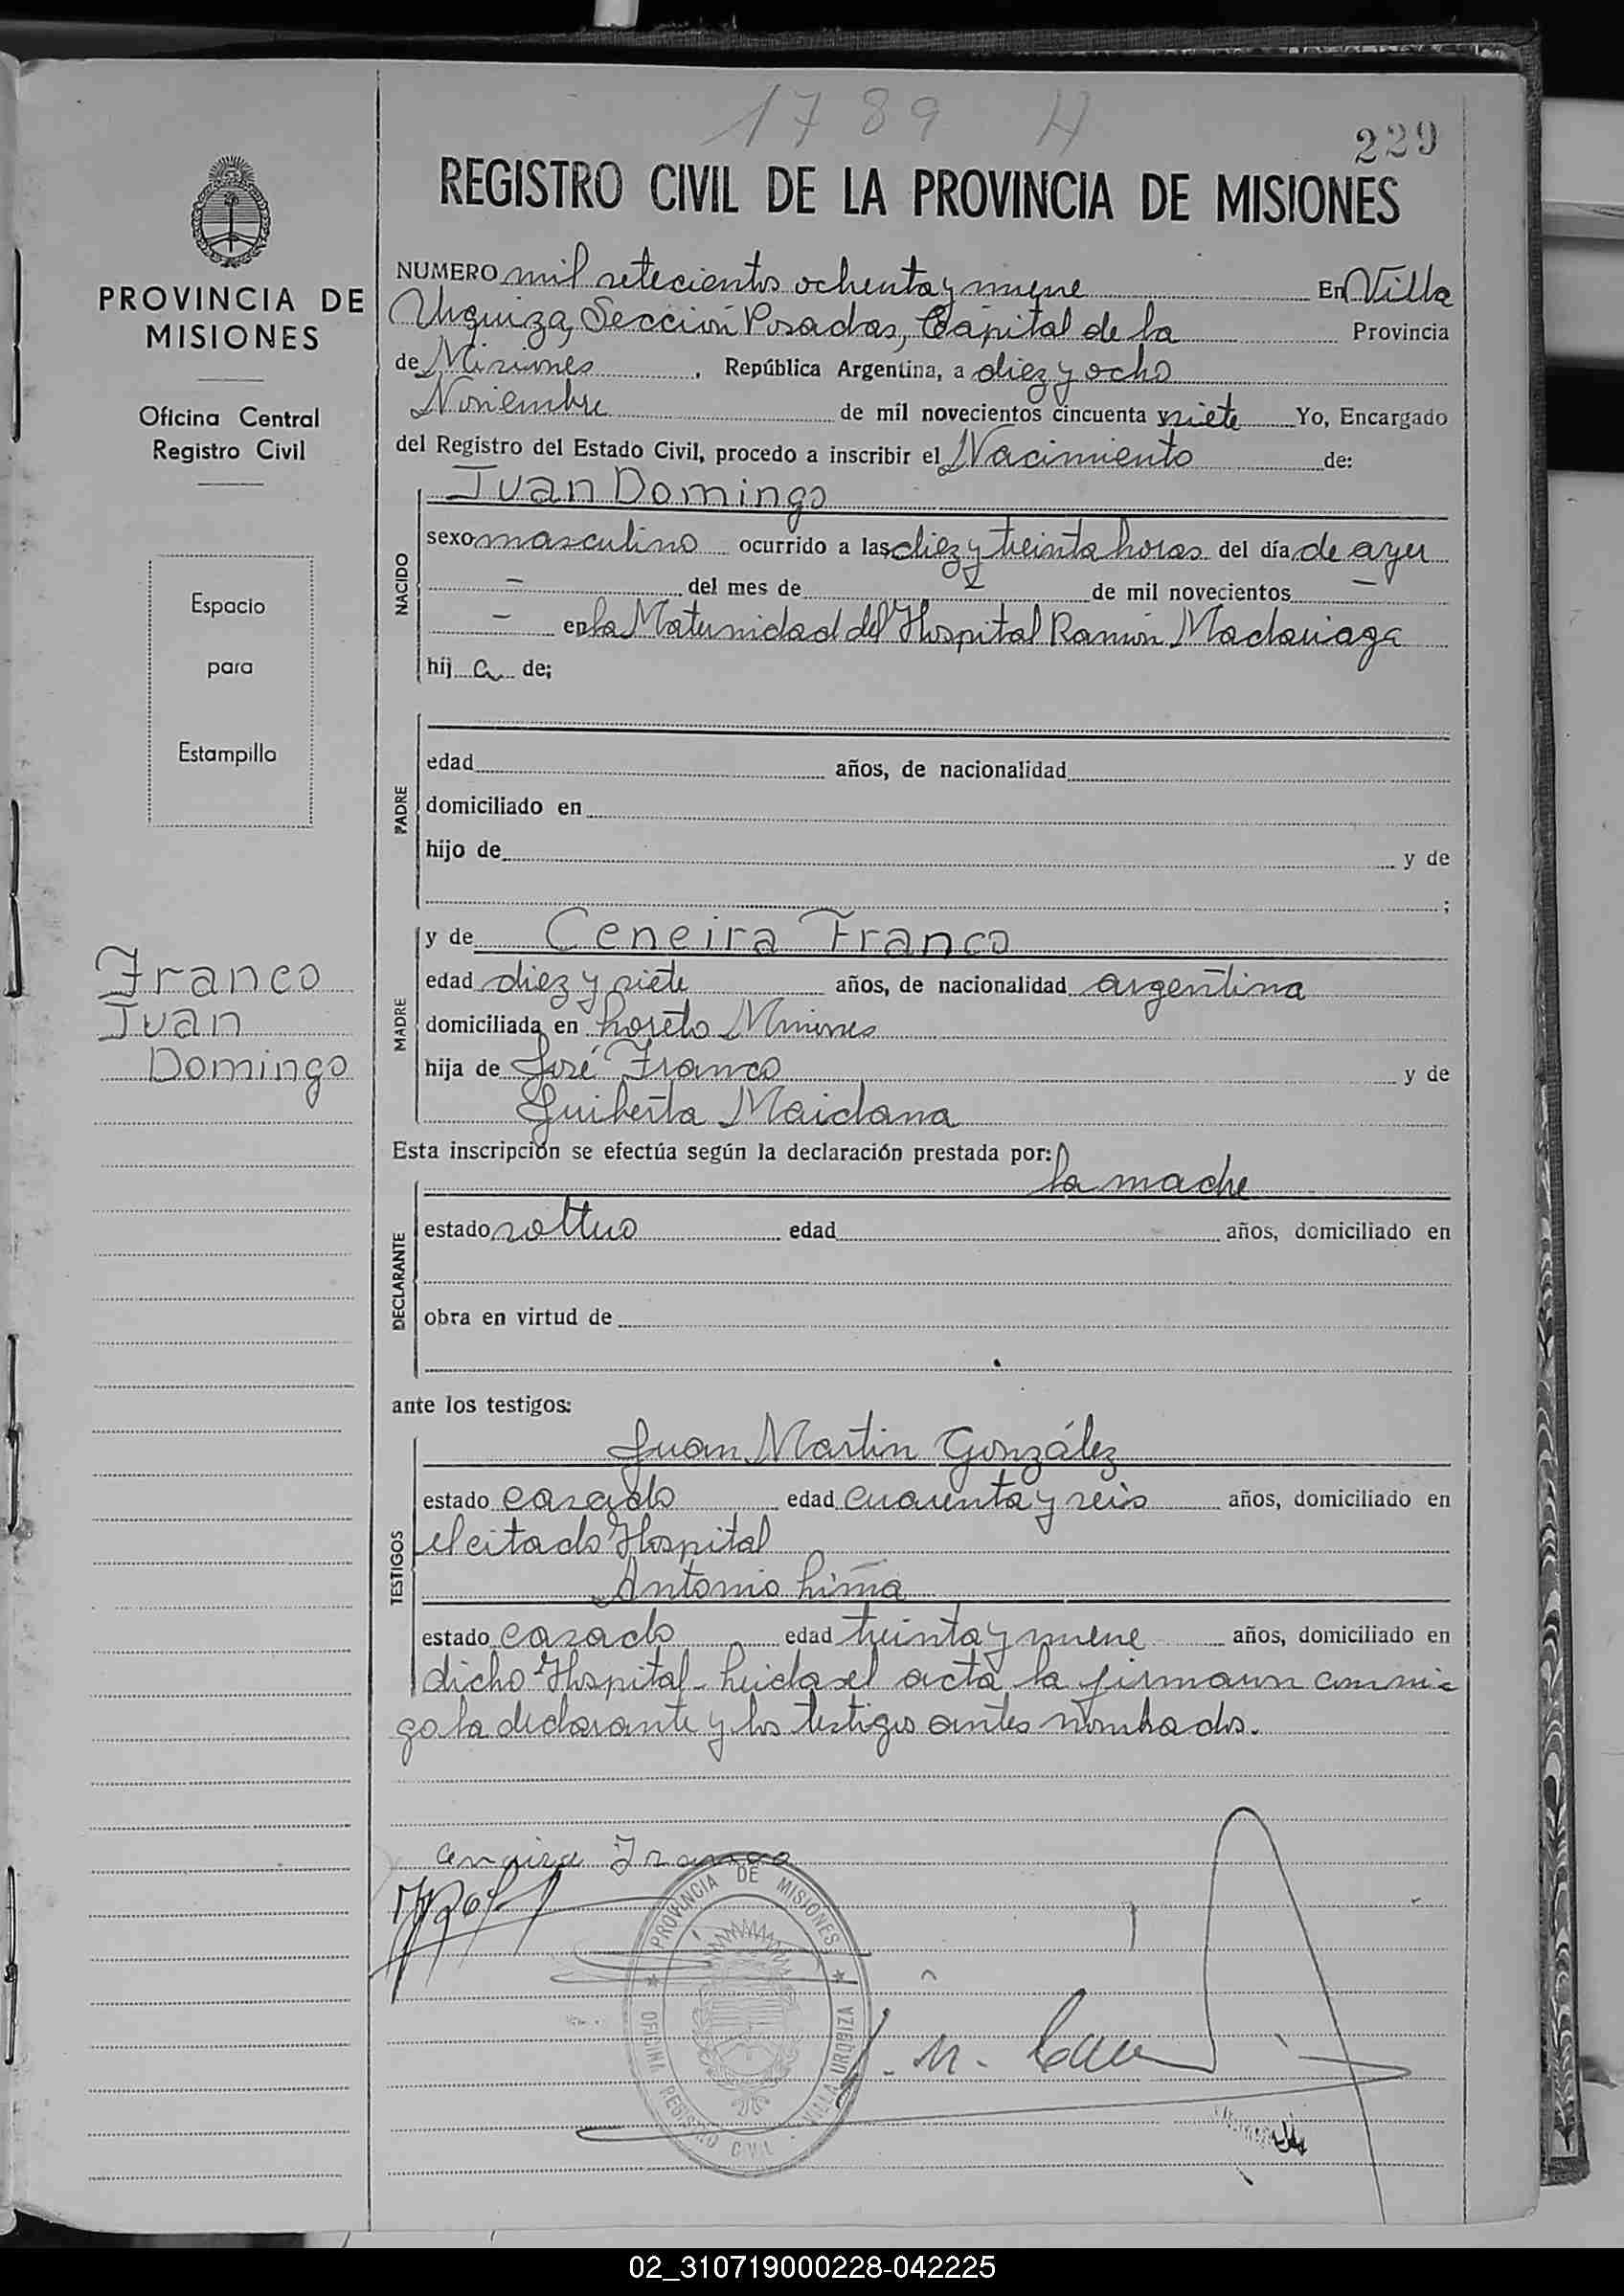 1789 H
229
REGISTRO CIVIL DE LA PROVINCIA DE MISIONES
PROVINCIA DE
MISIONES
Oficina Central
Registro Civil
Espacio
para
Estampilla
Franco
Juan
Domingo
NUMERO mil setecientos ochenta y nueve En Villa
Urquiza, Sección Posadas, Capital de la Provincia
de Misiones, República Argentina, a diez y ocho
Noviembre de mil novecientos cincuenta y siete Yo, Encargado
del Registro del Estado Civil, procedo a inscribir el Nacimiento de:
NACIDO
Juan Domingo
sexo masculino ocurrido a las diez y treinta horas del día de ayer
- del mes de - de mil novecientos -
- en la Maternidad del Hospital Ramón Madariaga
hij o de;
PADRE
edad años, de nacionalidad
domiciliado en
hijo de y de
;
MADRE
y de Ceneira Franco
edad diez y siete años, de nacionalidad argentina
domiciliada en Loreto Misiones
hija de José Franco y de
Guiberta Maidana
Esta inscripción se efectúa según la declaración prestada por:
DECLARANTE
la madre
estado soltero edad años, domiciliado en
obra en virtud de
ante los testigos:
TESTIGOS
Juan Martin González
estado casado edad cuarenta y seis años, domiciliado en
el citado Hospital
Antonio Lima
estado casado edad treinta y nueve años, domiciliado en
dicho Hospital - Leida el acta la firmaron conmi-
go la declarante y los testigos antes nombrados.
Franco
PROVINCIA DE MISIONES
OFICINA REGISTRO CIVIL - VILLA URQUIZA
02_310719000228-042225